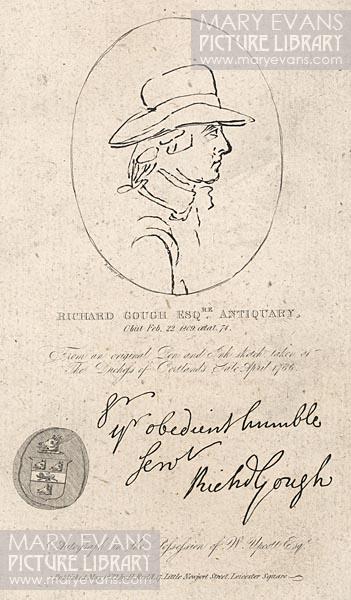 MARY EVANS
PICTURE LIBRARY
www.maryevans.com
RICHARD GOUGH ESQRE. ANTIQUARY.
Obiit Feb. 22 1809 ætat. 74.
From an original Pen and Ink sketch taken at
The Duchess of Portland's Sale April 1786.
Sr
yr obedient humble
Servt
Richd Gough
MARY EVANS
PICTURE LIBRARY
www.maryevans.com
Autograph in the Possession of W. Upcott Esqr.
Little Newport Street, Leicester Square
MARY EVANS
PICTURE LIBRARY
www.maryevans.com